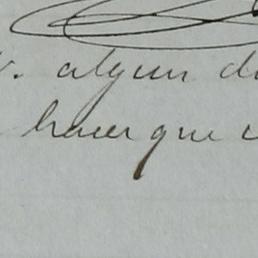 . algun d
hacer que